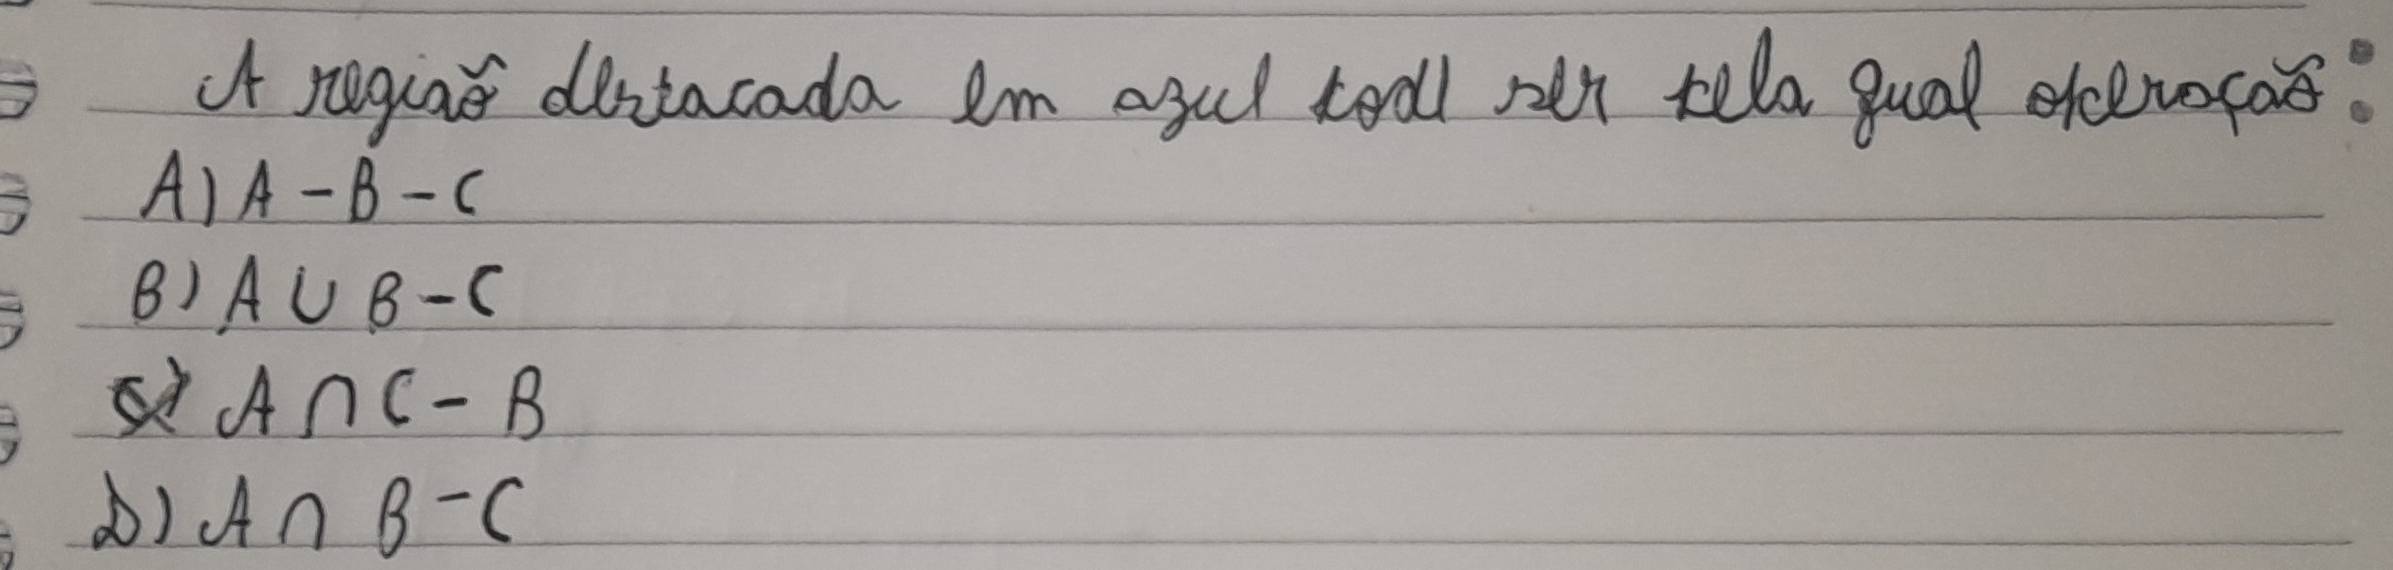 A região destacada em azul pode ser pela qual operação:
A) A - B - C
B) A ∪ B - C
C) A ∩ C - B
D) A ∩ B - C